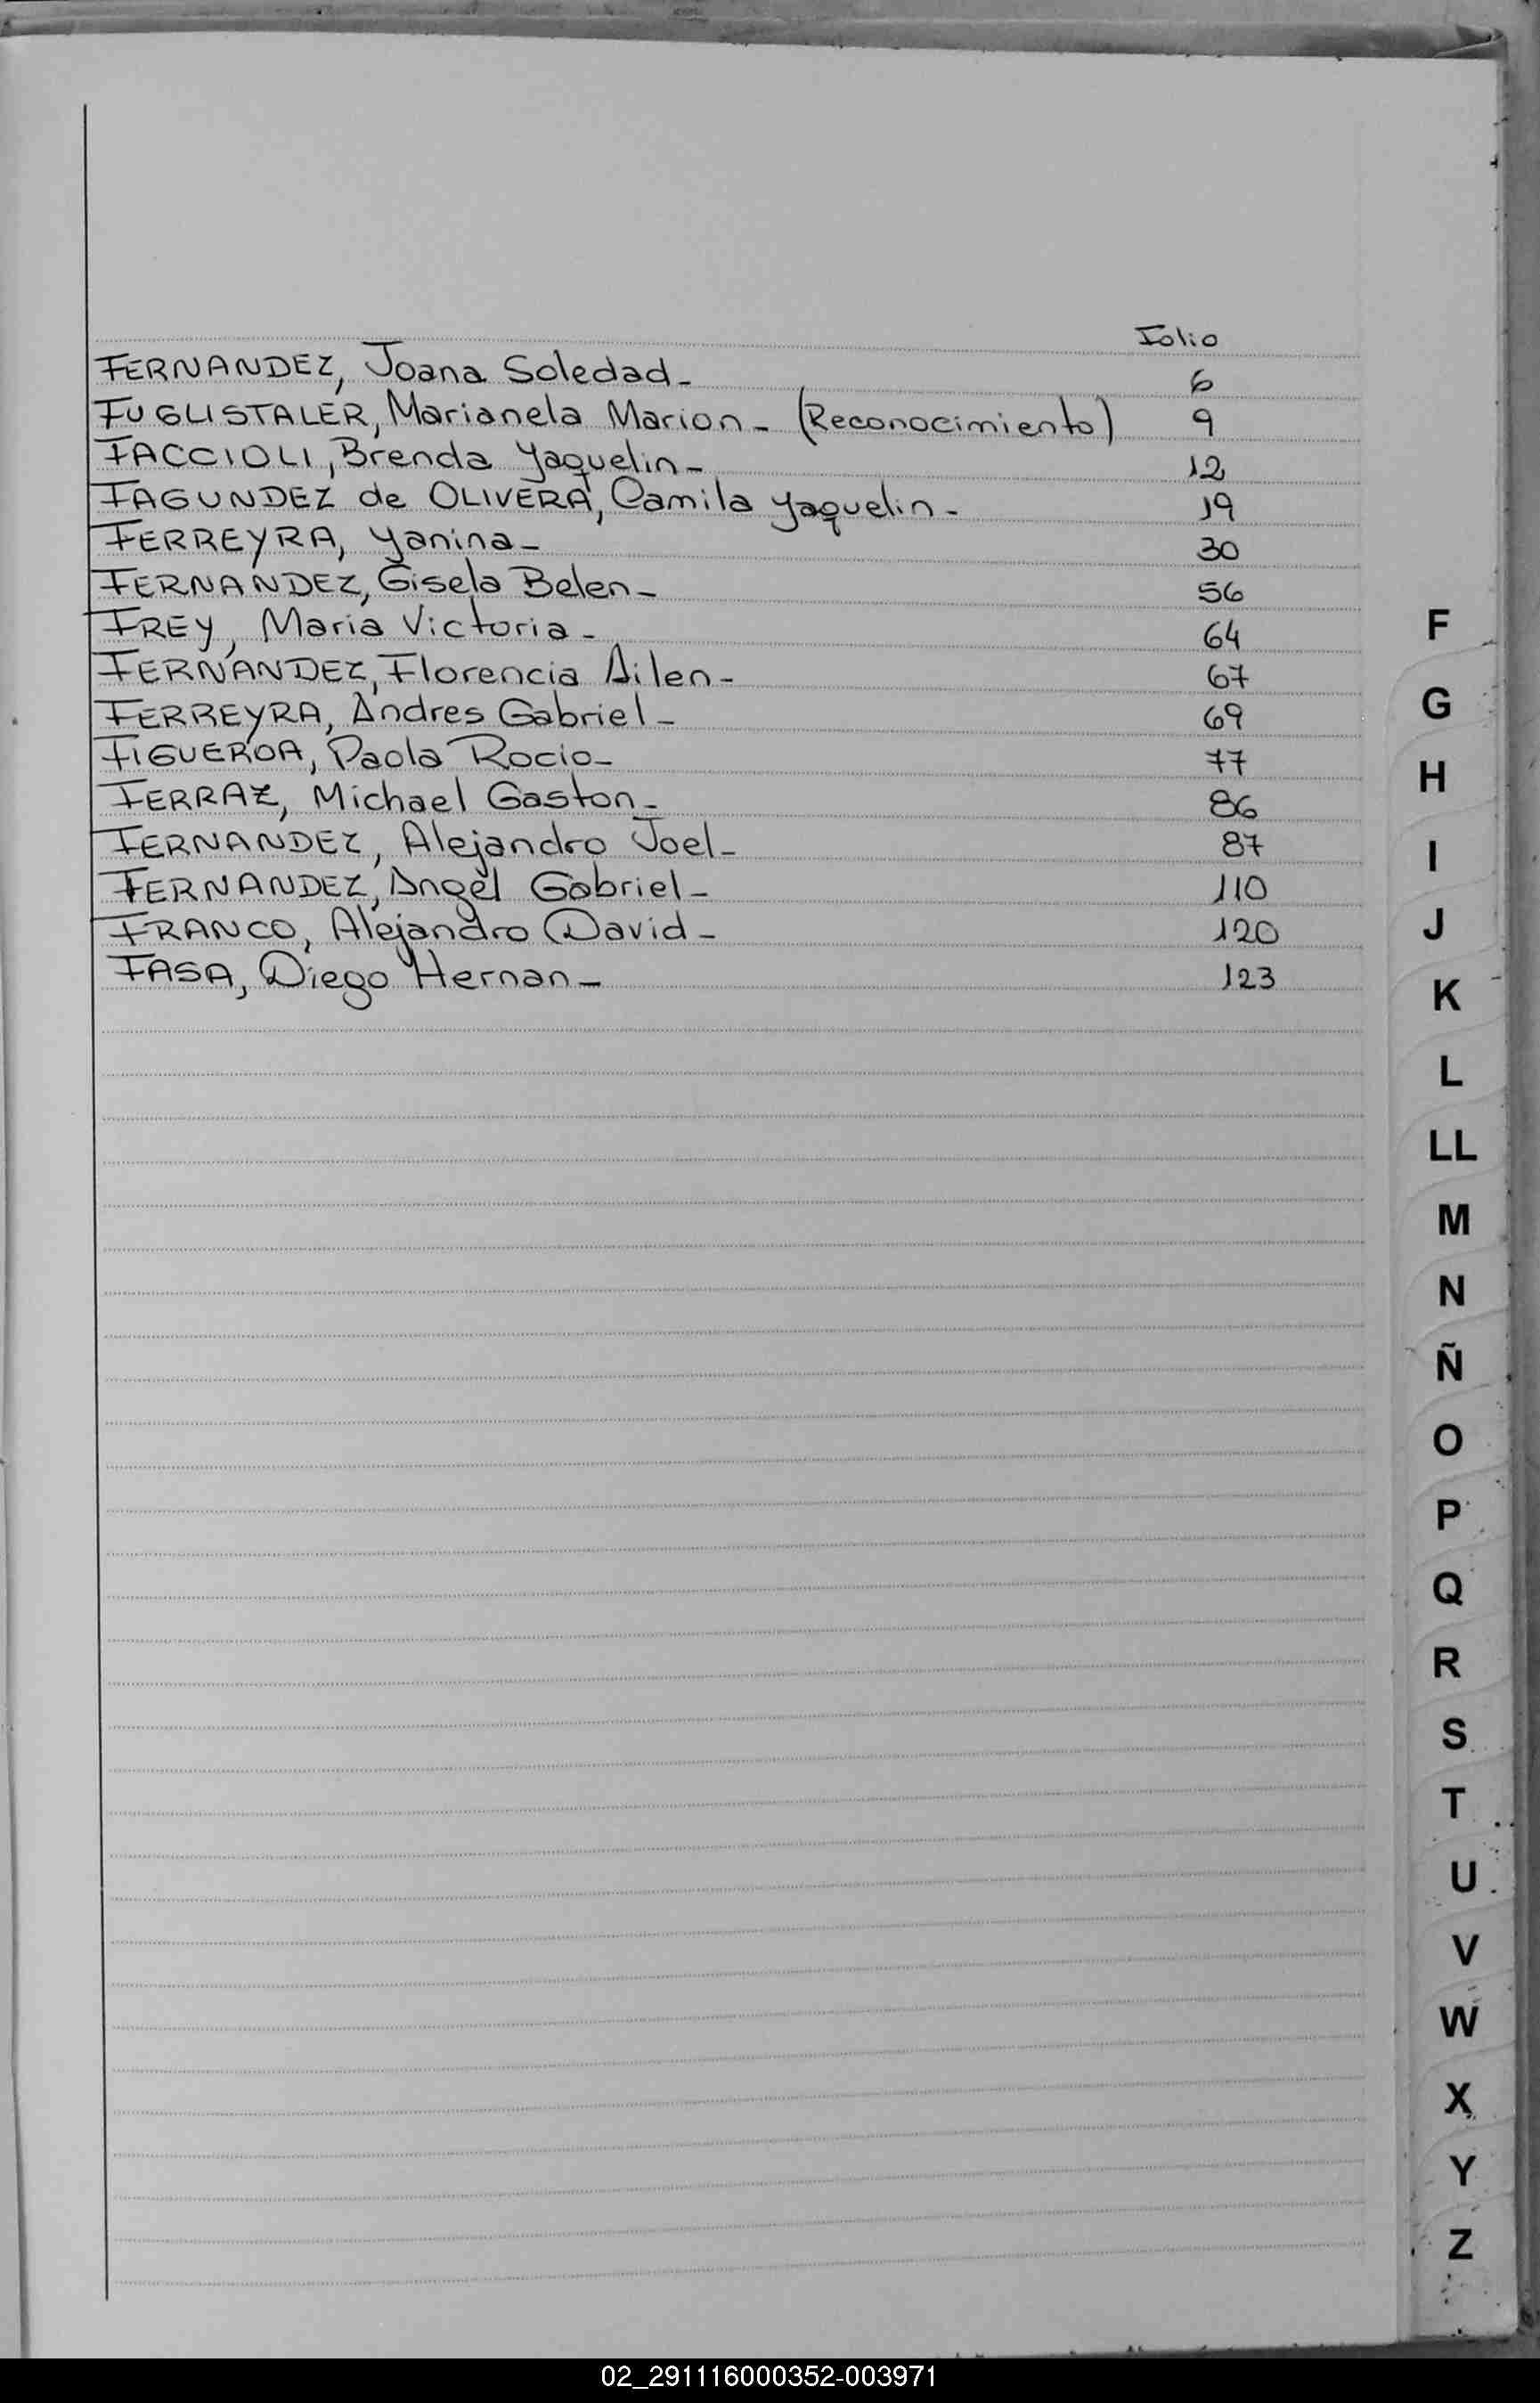 Folio
FERNANDEZ, Joana Soledad- 6
FUGLISTALER, Marianela Marion- (Reconocimiento) 9
FACCIOLI, Brenda Yaquelin- 12
FAGUNDEZ de OLIVERA, Camila Yaquelin- 19
FERREYRA, Yanina- 30
FERNANDEZ, Gisela Belen- 56
FREY, Maria Victoria- 64
FERNANDEZ, Florencia Ailen- 67
FERREYRA, Andres Gabriel- 69
FIGUEROA, Paola Rocio- 77
FERRAZ, Michael Gaston- 86
FERNANDEZ, Alejandro Joel- 87
FERNANDEZ, Angel Gabriel- 110
FRANCO, Alejandro David- 120
FASA, Diego Hernan- 123
F
G
H
I
J
K
L
LL
M
N
Ñ
O
P
Q
R
S
T
U
V
W
X
Y
Z
02_291116000352-003971